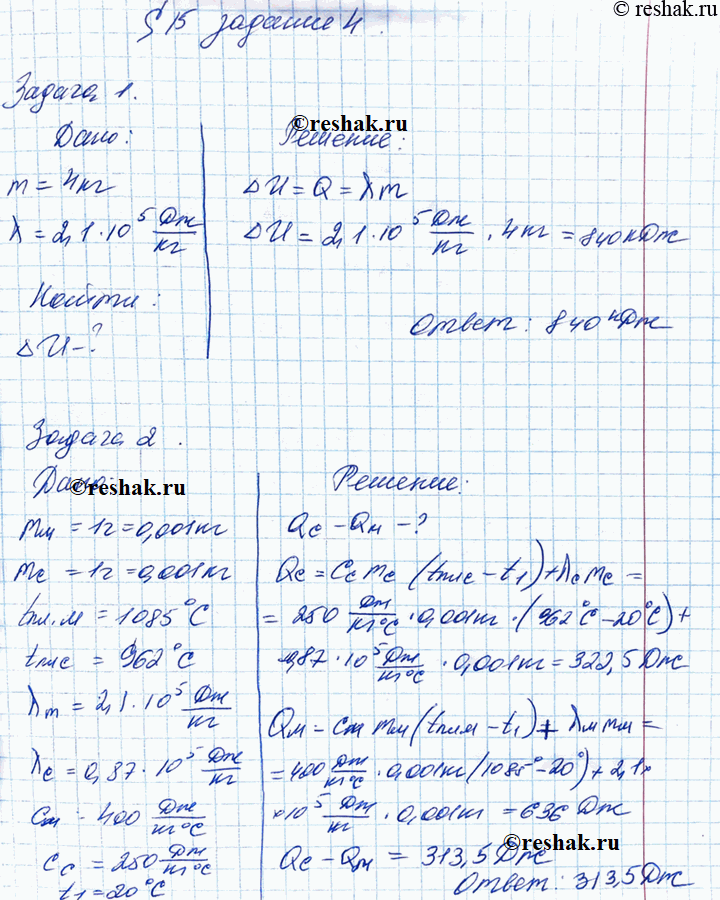 © reshak.ru
§ 15 задание 4.
Задача 1.
Дано:
m = 4 кг
λ = 2,1 · 10⁵ Дж/кг
Найти:
ΔU - ?
©reshak.ru
Решение:
ΔU = Q = λm
ΔU = 2,1 · 10⁵ Дж/кг · 4 кг = 840 кДж
Ответ: 840 кДж
Задача 2.
Дано:
©reshak.ru
mм = 1г = 0,001кг
mс = 1г = 0,001кг
tпл.м = 1085°C
tплс = 962°C
λm = 2,1 · 10⁵ Дж/кг
λс = 0,87 · 10⁵ Дж/кг
Cм = 400 Дж/кг°C
Cс = 250 Дж/кг°C
t₁ = 20°C
Решение:
Qс - Qм - ?
Qс = Cс mс (tплс - t₁) + λс mс =
= 250 Дж/кг°C · 0,001кг · (962°C - 20°C) +
0,87 · 10⁵ Дж/кг°C · 0,001кг = 322,5 Дж
Qм = Cм mм (tплм - t₁) + λм mм =
= 400 Дж/кг°C · 0,001кг (1085° - 20°) + 2,1 ×
× 10⁵ Дж/кг · 0,001кг = 636 Дж
©reshak.ru
Qс - Qм = 313,5 Дж
Ответ: 313,5 Дж